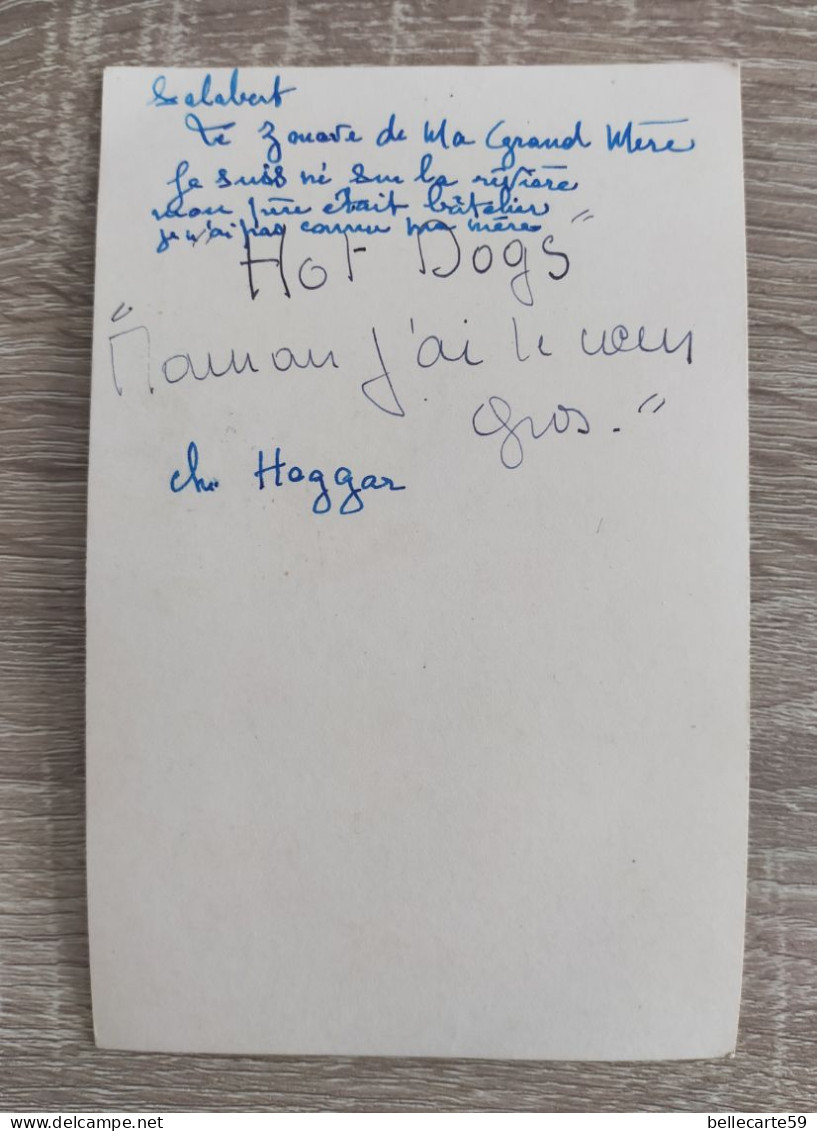 Salabert
Le Zouave de Ma Grand Mère
Je suis né sur la rivière
mon père était bâtelier
je n'ai pas connu ma mère
Hot Dogs"
"Maman j'ai le coeur
gros."
ch. Hoggar
bellecarte59